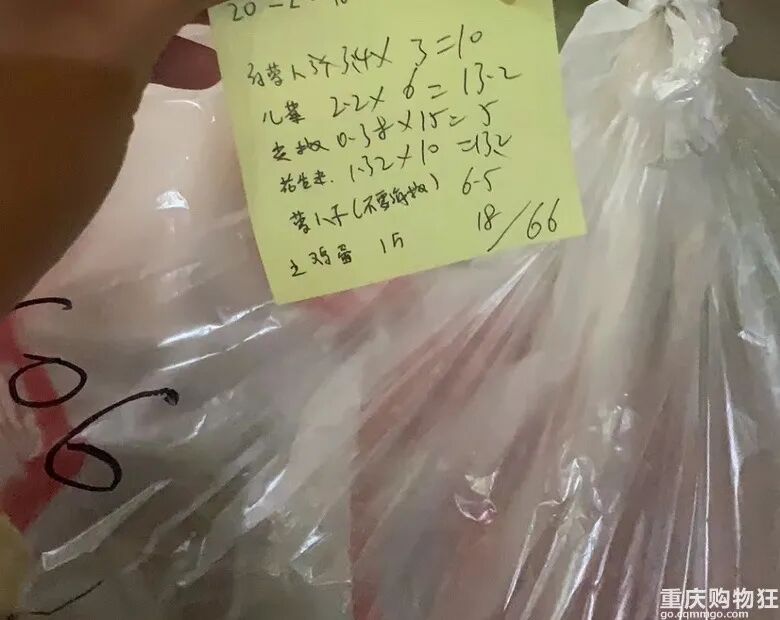 20-2-
白萝卜 3.4× 3=10
儿菜 2.2× 6= 13.2
0.38×15= 5
花生米. 1.32×10 =13.2
萝卜干(不要海椒) 6.5
土鸡蛋 15 18/66
06
重庆购物狂
go.cqmmgo.com